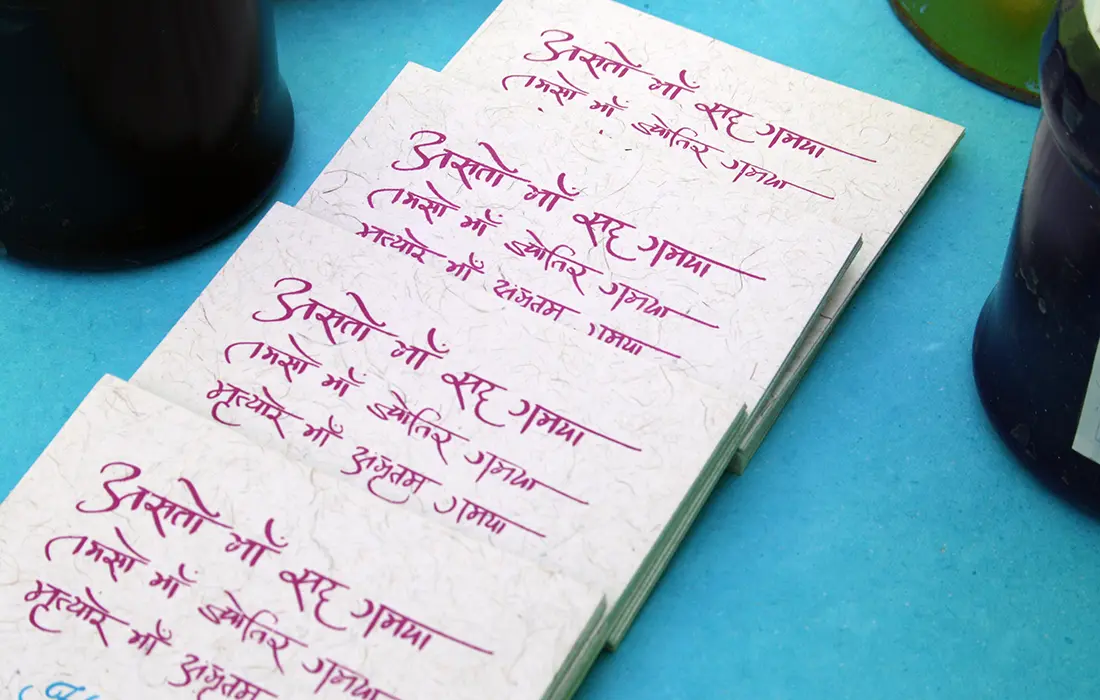 असतो माँ सद् गमया
तमसो माँ ज्योतिर गमया
असतो माँ सद् गमया
तमसो माँ ज्योतिर गमया
मृत्योर माँ अमृतम गमया
असतो माँ सद् गमया
तमसो माँ ज्योतिर गमया
मृत्योर माँ अमृतम गमया
असतो माँ सद् गमया
तमसो माँ ज्योतिर गमया
मृत्योर माँ अमृतम